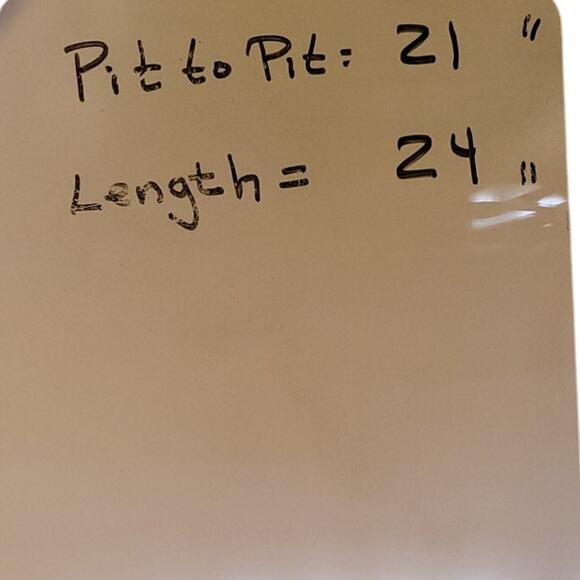 Pit to Pit: 21 "
Length = 24 "